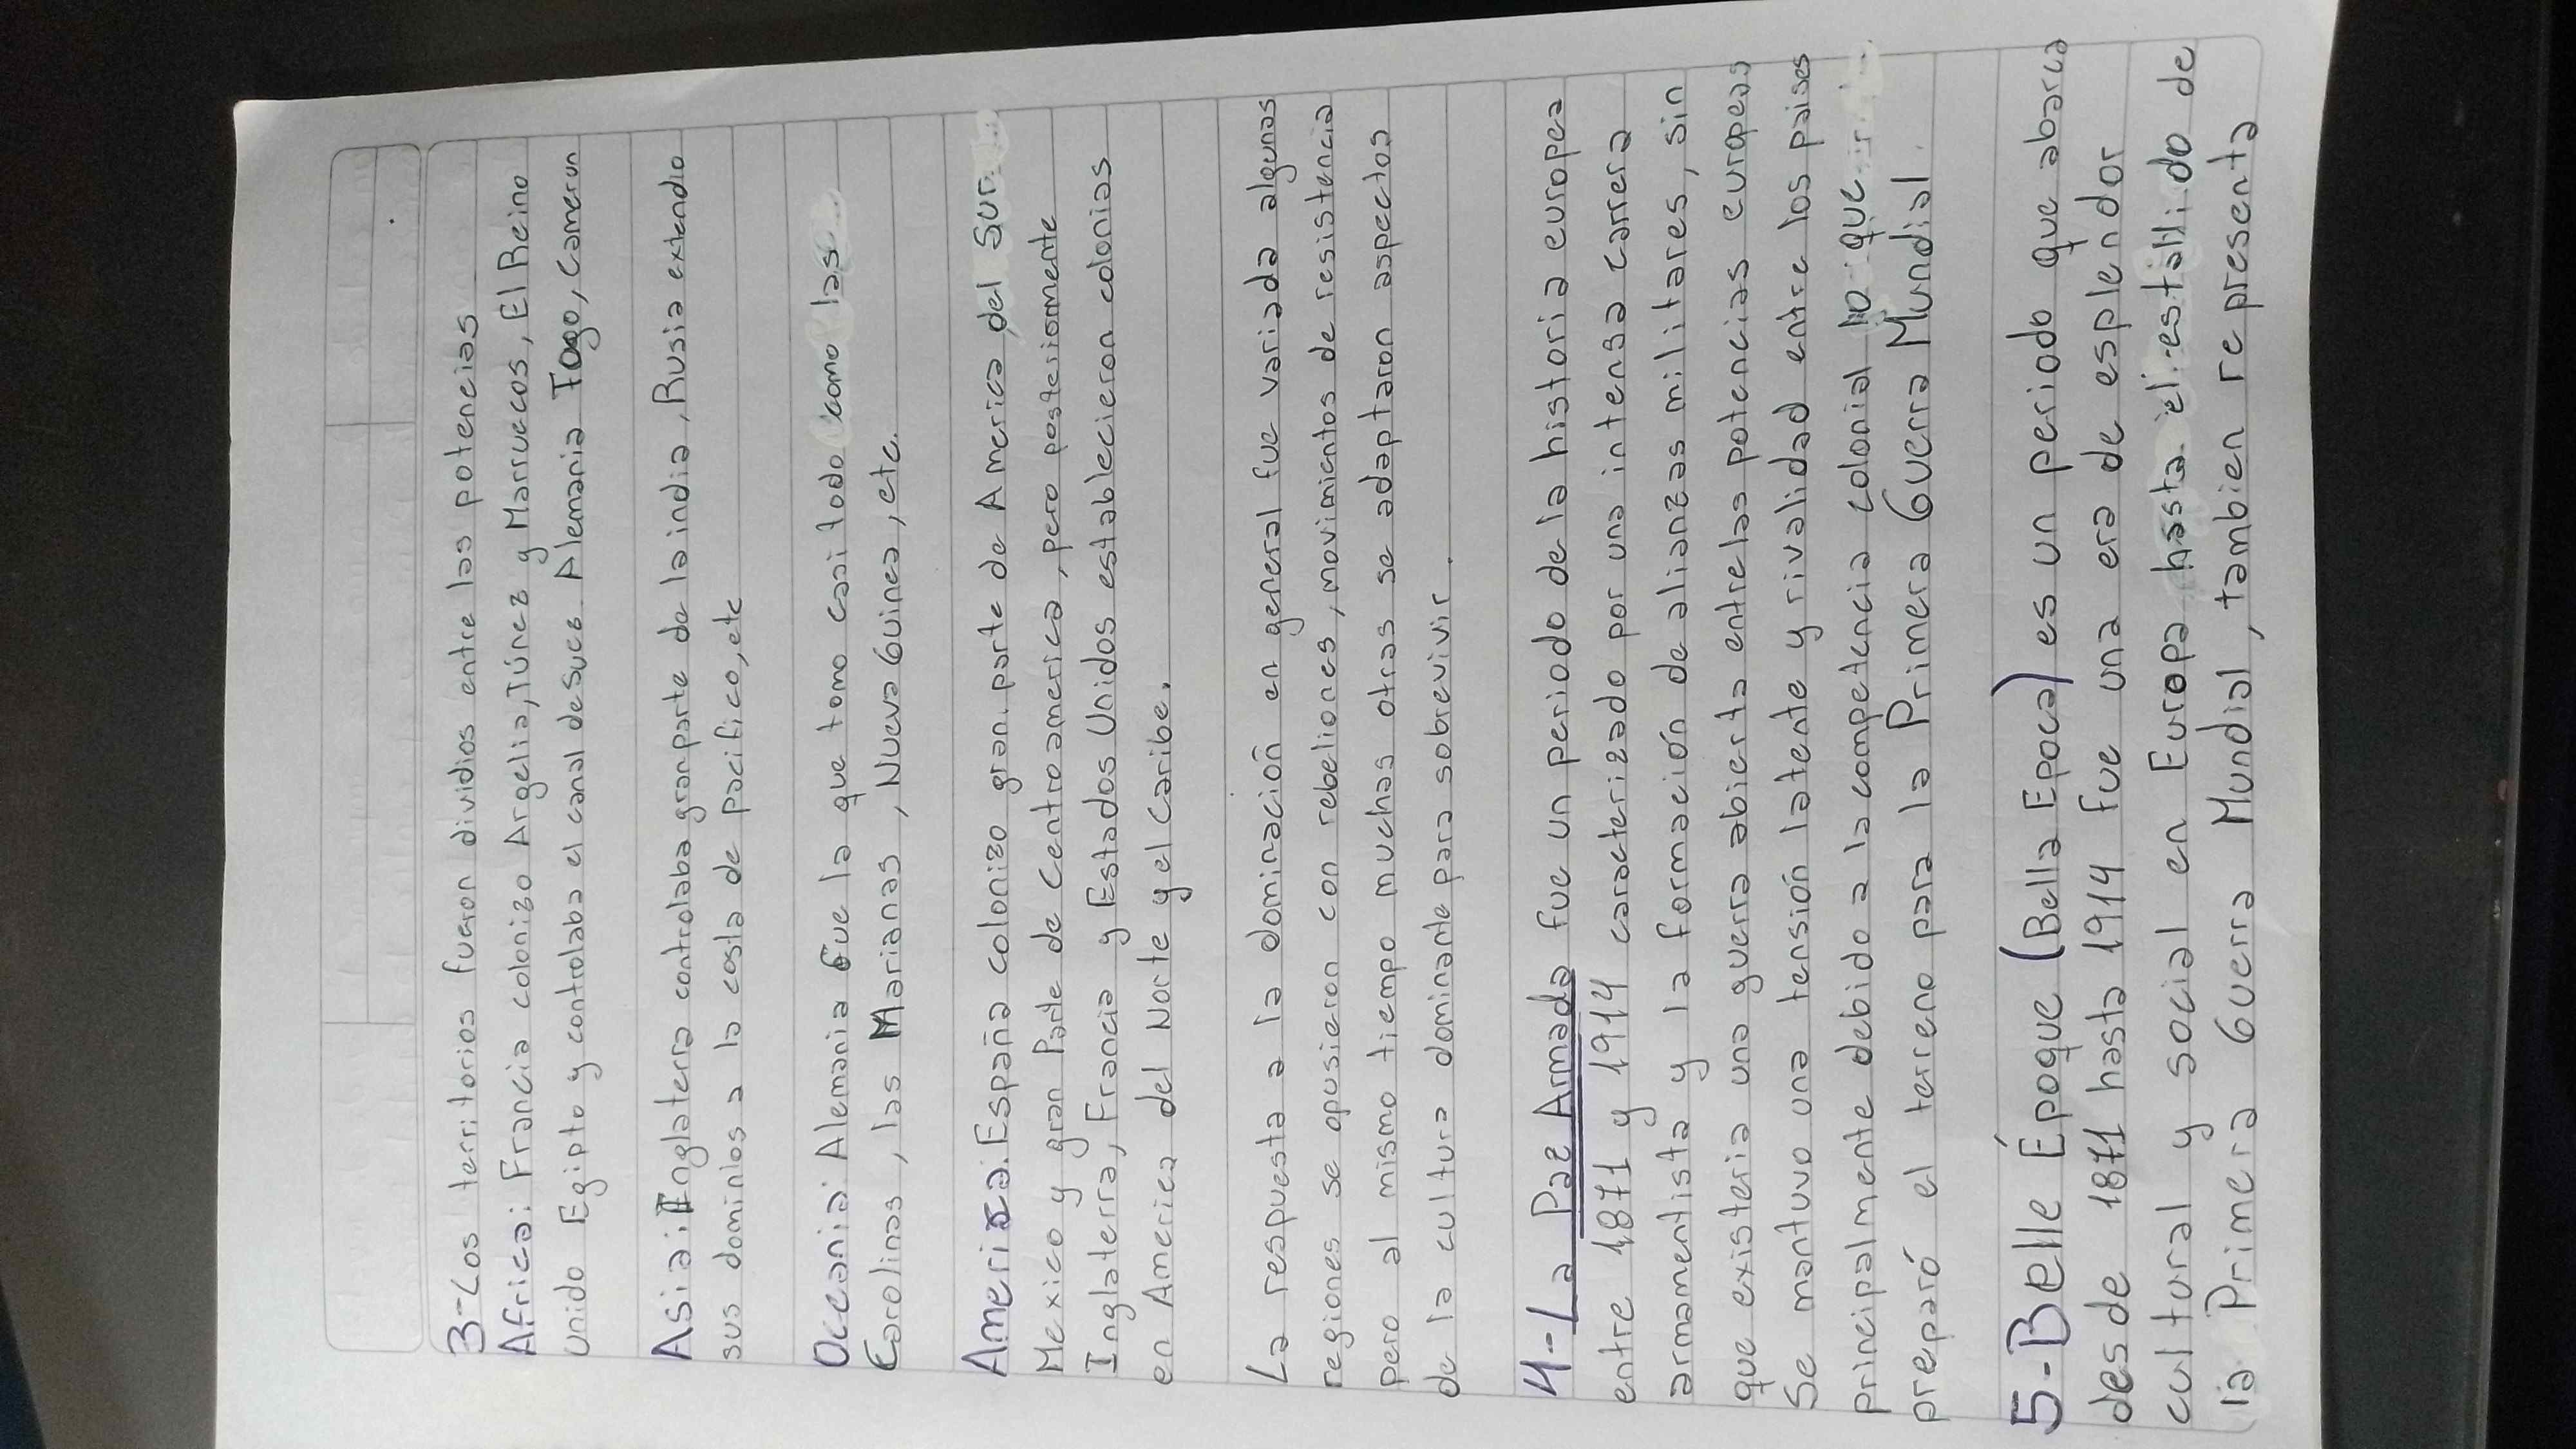 3-Los territorios fueron dividios entre las potencias
Africa: Francia colonizo Argelia, Túnez y Marruecos, El Reino
Unido Egipto y controlaba el canal de Suez. Alemania Togo, Camerun
Asia: Inglaterra controlaba gran parte de la india, Rusia extendio
sus dominios a la costa de pacifico, etc
Oceania: Alemania fue la que tomo casi todo como las
Carolinas, las Marianas, Nueva Guinea, etc.
America: España colonizo gran parte de America del Sur
Mexico y gran Parte de Centroamerica, pero posteriomente
Inglaterra, Francia y Estados Unidos establecieron colonias
en America del Norte y el Caribe.
La respuesta a la dominación en general fue variada algunas
regiones se opusieron con rebeliones, movimientos de resistencia
pero al mismo tiempo muchas otras se adaptaron aspectos
de la cultura dominante para sobrevivir.
4-La Paz Armada fue un periodo de la historia europea
entre 1871 y 1914 caracterizado por una intensa carrera
armamentista y la formación de alianzas militares, sin
que existeria una guerra abierta entre las potencias europeas
Se mantuvo una tensión latente y rivalidad entre los paises
principalmente debido a la competencia colonial lo que
preparó el terreno para la Primera Guerra Mundial.
5-Belle Époque (Bella Epoca) es un periodo que abarca
desde 1871 hasta 1914 fue una era de esplendor
cultural y social en Europa hasta el estallido de
la Primera Guerra Mundial, tambien representa